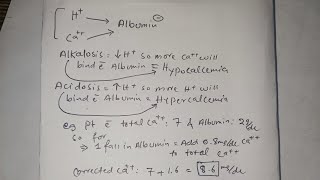 H⁺
Albumin ⊖
Ca⁺⁺
Alkalosis = ↓H⁺ so more Ca⁺⁺ will
bind c̄ Albumin = Hypocalcemia
Acidosis = ↑H⁺ so more H⁺ will
bind c̄ Albumin = Hypercalcemia
eg pt c̄ total Ca⁺⁺: 7 & Albumin: 2g/dl
so for
→ 1 fall in Albumin = Add 0.8mg/dl Ca⁺⁺
to total Ca⁺⁺
corrected Ca⁺⁺: 7 + 1.6 = 8.6 mg/dl